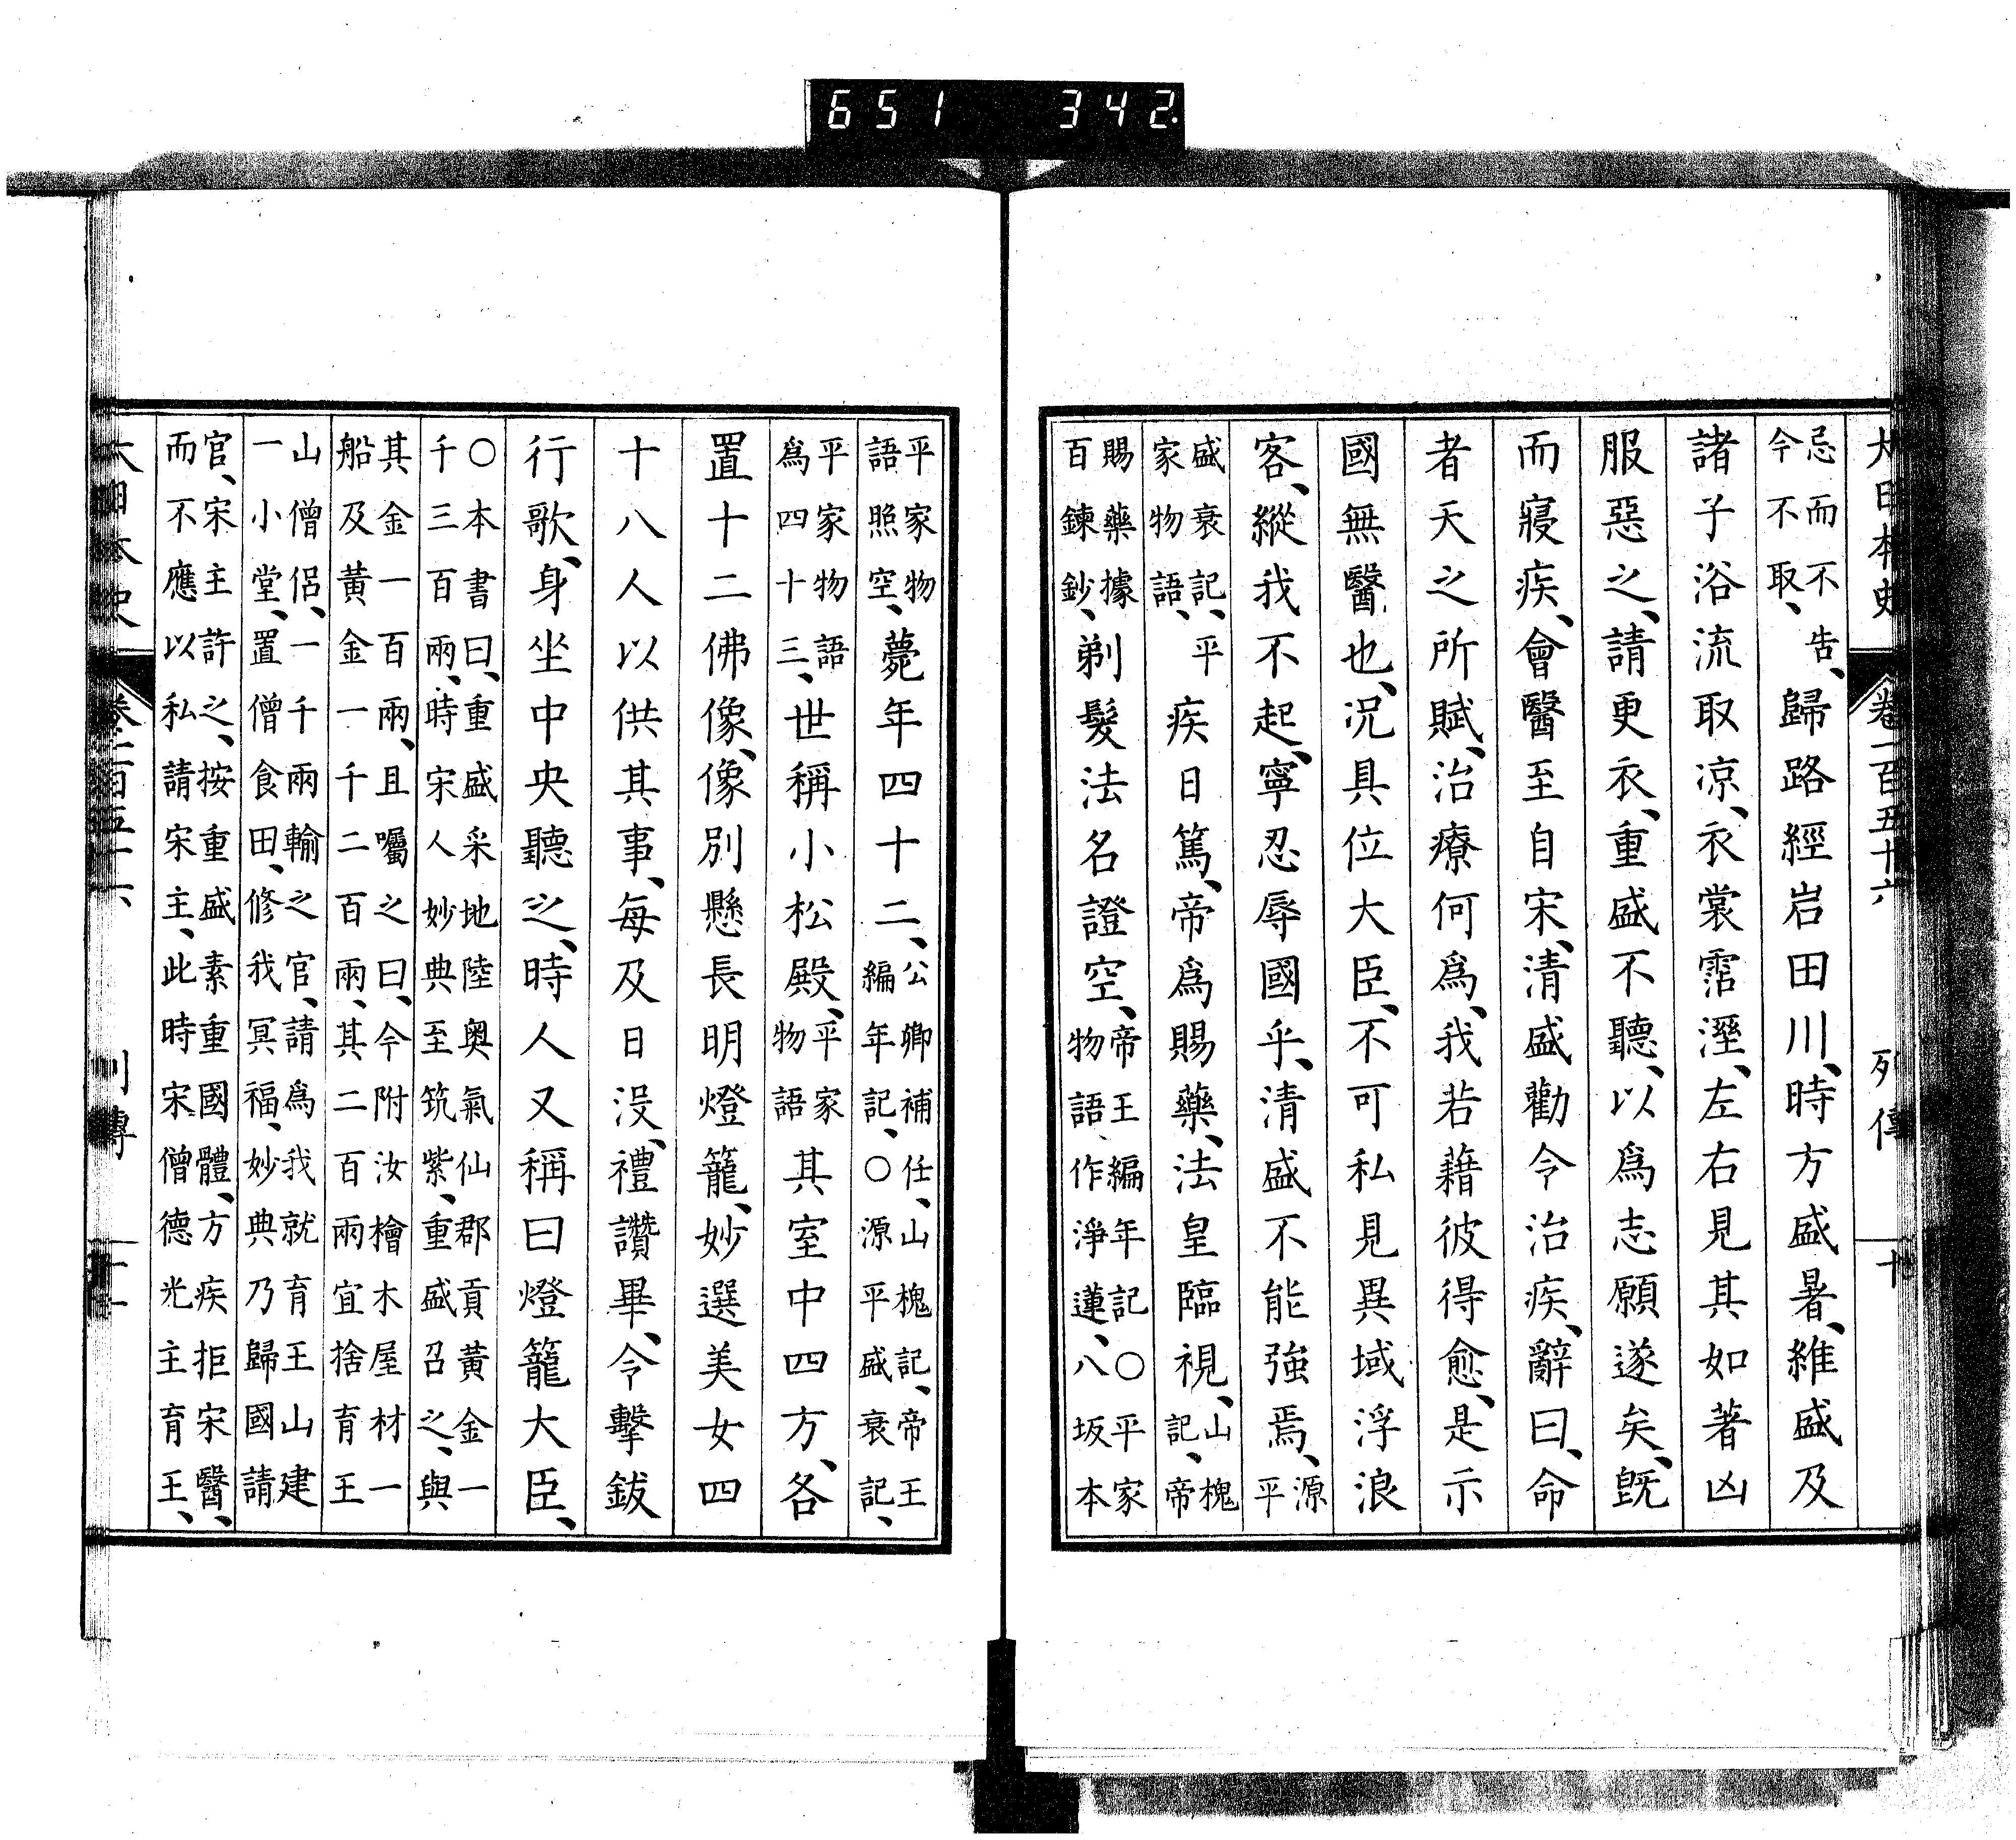 651 342.
大日本史 卷一百五十六 列傳 十
忌而不告、
今不取、
歸路經岩田川、時方盛暑、維盛及
諸子浴流取凉、衣裳霑溼、左右見其如著凶
服惡之、請更衣、重盛不聽、以爲志願遂矣、既
而寢疾、會醫至自宋、清盛勸令治疾、辭曰、命
者天之所賦、治療何爲、我若藉彼得愈、是示
國無醫也、況具位大臣、不可私見異域浮浪
客、縱我不起、寧忍辱國乎、清盛不能強焉、
源
平
盛衰記、平
家物語、
疾日篤、帝爲賜藥、法皇臨視、
山槐
記、帝
賜藥據
百鍊鈔、
剃髮法名證空、
帝王編年記○平家
物語作淨蓮、八坂本
平家物
語照空、
薨年四十二、
公卿補任、山槐記、帝王
編年記、○源平盛衰記、
平家物語
爲四十三、
世稱小松殿、
平家
物語
其室中四方、各
置十二佛像、像別懸長明燈籠、妙選美女四
十八人以供其事、每及日沒、禮讚畢、令擊鈸
行歌、身坐中央聽之、時人又稱曰燈籠大臣、
○本書曰、重盛采地陸奧氣仙郡貢黃金一
千三百兩、時宋人妙典至筑紫、重盛召之、與
其金一百兩、且囑之曰、今附汝檜木屋材一
船及黃金一千二百兩、其二百兩宜捨育王
山僧侶、一千兩輸之官、請爲我就育王山建
一小堂、置僧食田、修我冥福、妙典乃歸國請
官、宋主許之、按重盛素重國體、方疾拒宋醫、
而不應以私請宋主、此時宋僧德光主育王、
大日本史 卷一百五十六 列傳 十一